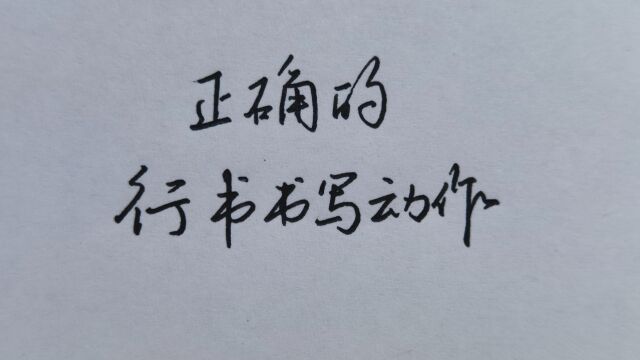 正确的
行书书写动作